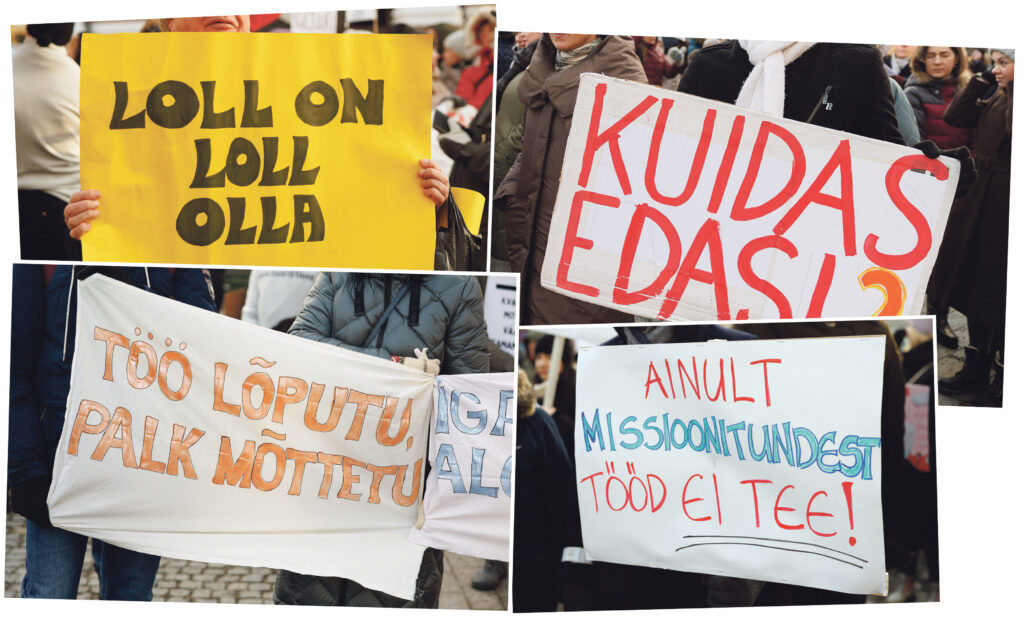 LOLL ON
LOLL
OLLA
KUIDAS
EDASI?
TÖÖ LÕPUTU,
PALK MÕTTETU
AINULT
MISSIOONITUNDEST
TÖÖD EI TEE!